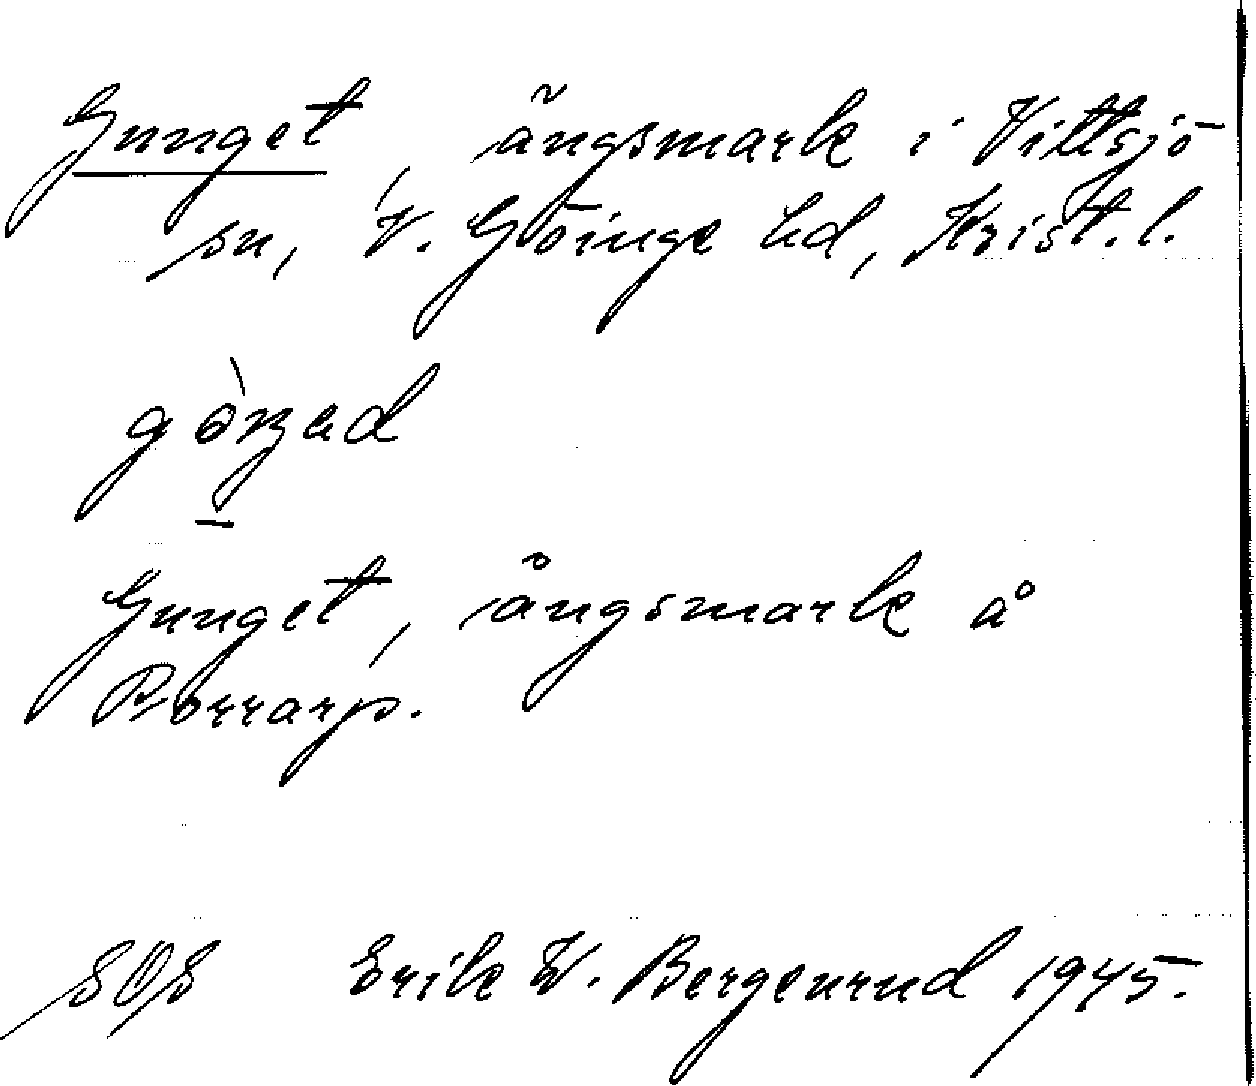 Gunget, ängsmark i Vittsjö
sn, V. Göinge hd, Krist. l.
Gunget, ängsmark å
Borrarp.
SOS Erik W. Bergenrud 1945.